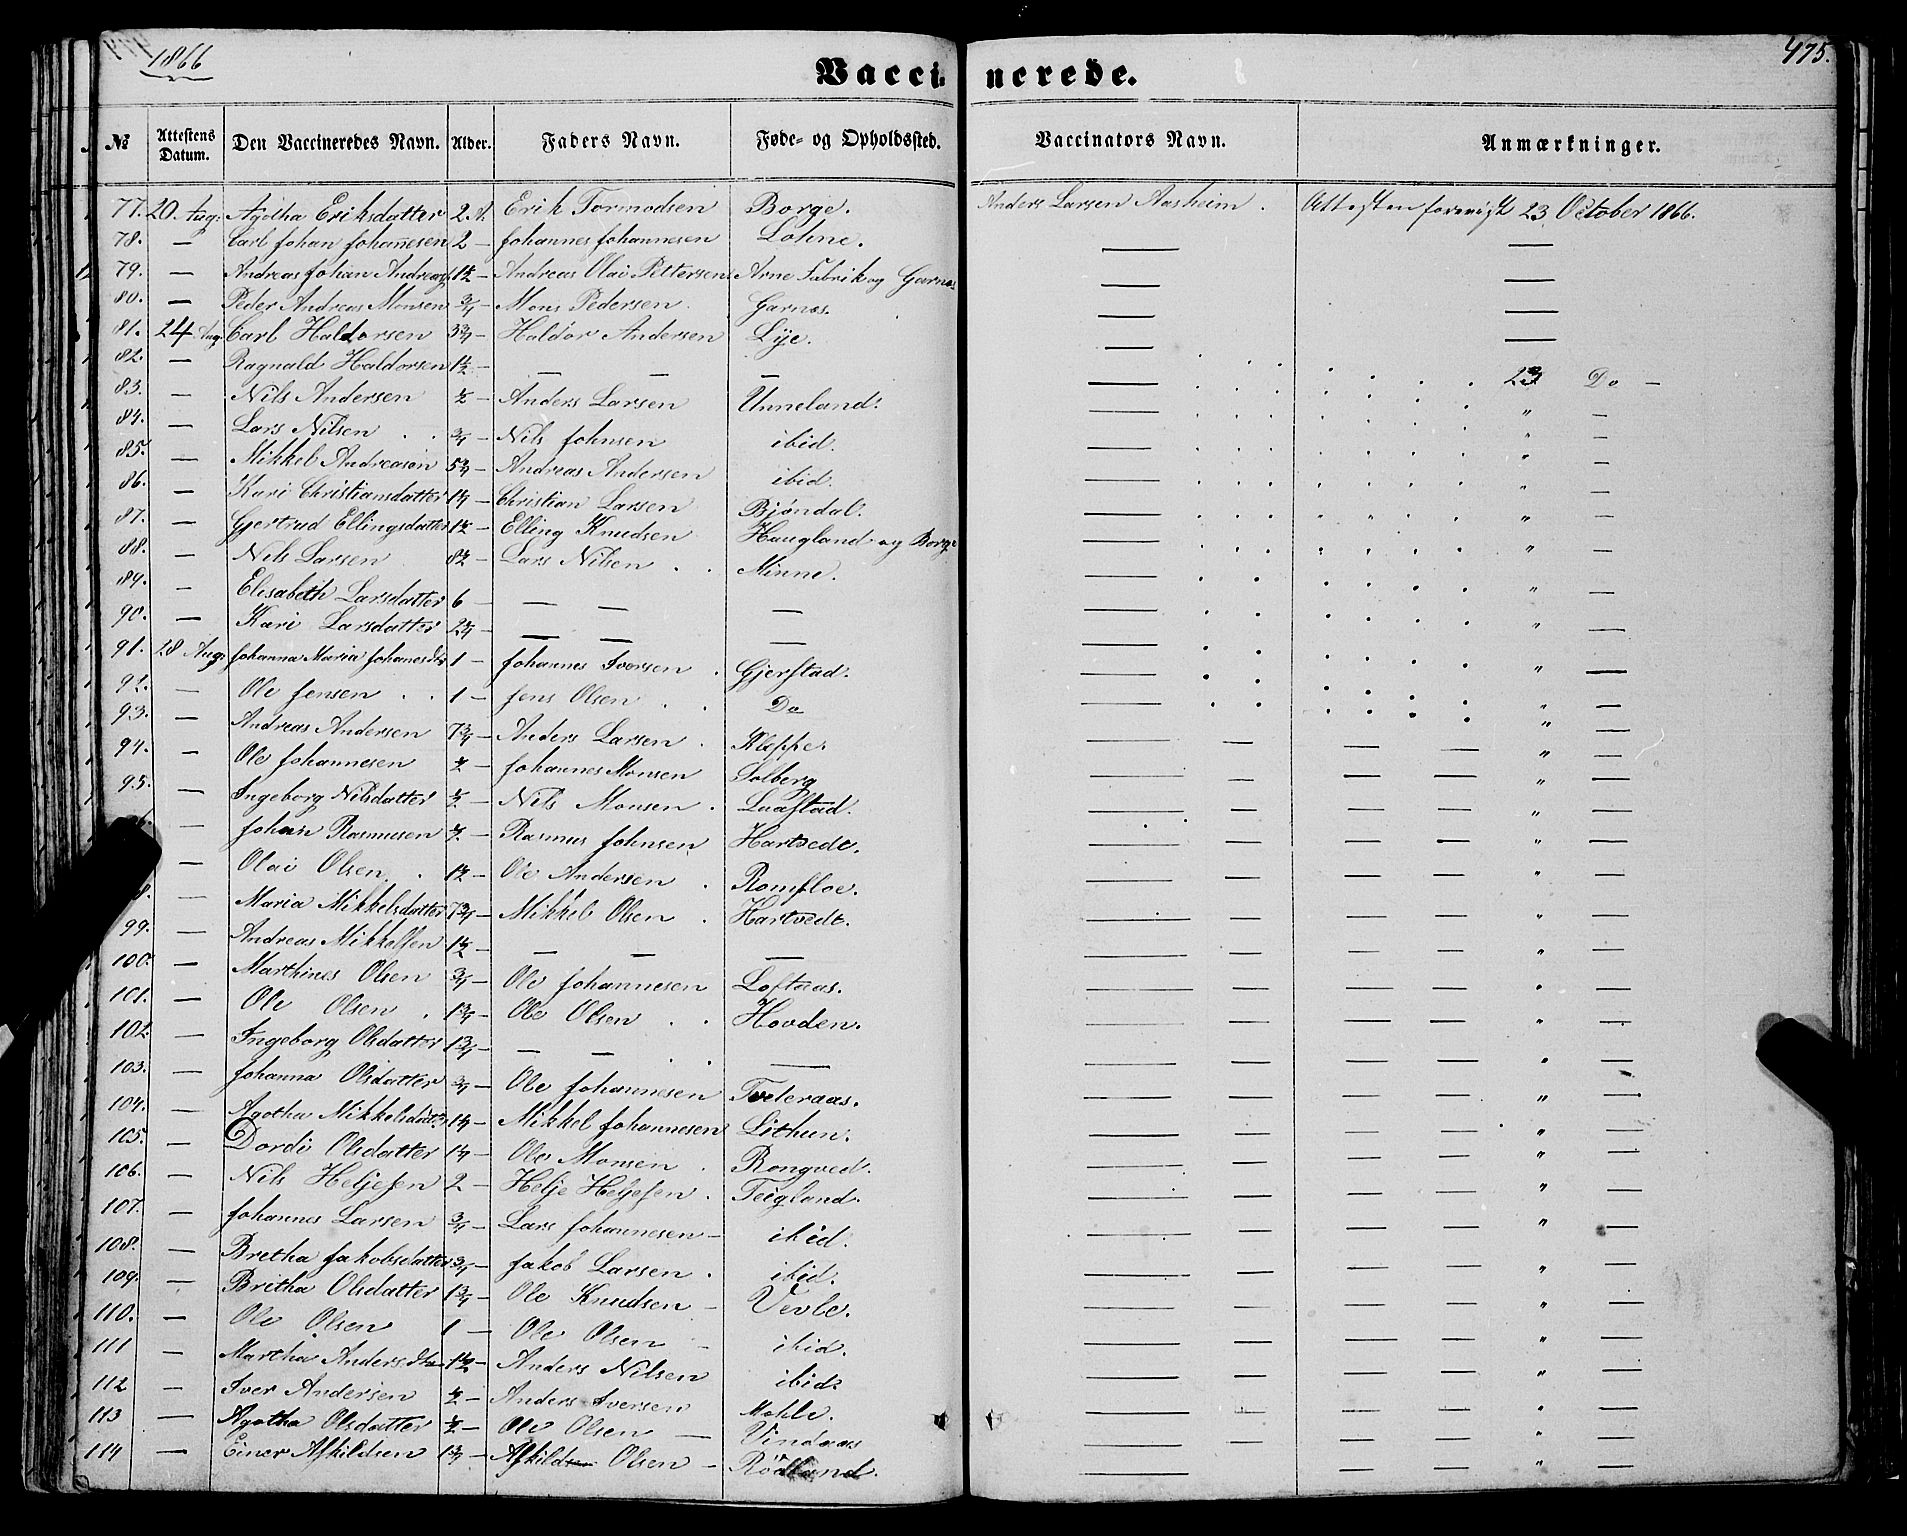 1866
475.
Vaccinerede.
№ Attestens Datum. Den Vaccineredes Navn. Alder. Faders Navn. Føde- og Opholdssted. Vaccinators Navn. Anmærkninger.
77. 20. Aug: Agotha Eriksdatter 2 A. Erik Tormodsen Borge. Anders Larsen Aasheim. Attesten forevist 23 October 1866.
78. — Carl Johan Johannesen 2 — Johannes Johannesen Lohne. — —
79. — Andreas Johan Andreas 1½ — Andreas Olai Pettersen Arne Fabrik og Garnes — —
80. — Peder Andreas Monsen ¾ — Mons Pedersen Garnes. — —
81. 24 Aug: Carl Haldorsen 3¾ — Haldor Andersen Lye. — —
82. — Ragnald Haldorsen 1½ — — — — — 23 Do —
83. — Nils Andersen ½ — Anders Larsen Unneland. — " —
84. — Lars Nilsen ¾ — Nils Johnsen ibid. — " —
85. — Mikkel Andreasen 5¾ — Andreas Andersen ibid. — " —
86. — Kari Christiansdatter 1¼ — Christian Larsen Bjøndal. — " —
87. — Gjertrud Ellingsdatter 1½ — Elling Knudsen Haugland og Borge — " —
88. — Nils Larsen 8½ — Lars Nilsen Minne. — " —
89. — Elisabeth Larsdatter 6 — — — — — " —
90. — Kari Larsdatter 2¾ — — — — — " —
91. 28 Aug: Johanna Maria Johanesdtr 1 — Johannes Iversen Gjerstad. — " —
92. — Ole Jensen 1 — Jens Olsen Do — " —
93. — Andreas Andersen 7¾ — Anders Larsen Kleppe. — — — — " —
94. — Ole Johannesen ½ — Johannes Monsen Solberg — — — — " —
95. — Ingeborg Nilsdatter ½ — Nils Monsen Laastad. — — — — " —
— Johan Rasmusen ½ — Rasmus Johnsen Hartvedt. — — — — " —
— Olai Olsen 1½ — Ole Andersen Romsloe. — — — — " —
8. — Maria Mikkelsdatter 7¾ — Mikkel Olsen Hartvedt. — — — — " —
99. — Andreas Mikkelsen 1½ — — — — — — — — " —
100. — Marthines Olsen ¾ — Ole Johannesen Loftaas. — — — — " —
101. — Ole Olsen 1¾ — Ole Olsen Hovden. — — — — " —
102. — Ingeborg Olsdatter 1¾ — — — — — — — — " —
103. — Johanna Olsdatter ¾ — Ole Johannesen Tveteraas. — — — — " —
104. — Agotha Mikkelsdatter 1¼ — Mikkel Johannesen Lithun. — — — — " —
105. — Dordi Olsdatter 1¼ — Ole Monsen Rongved. — — — — " —
106. — Nils Heljesen 2 — Helje Heljesen Teigland. — — — — " —
107. — Johannes Larsen ¾ — Lars Johannesen — ibid. — — — — " —
108. — Bretha Jakobsdatter ¾ — Jakob Larsen ibid. — — — — " —
109. — Bretha Olsdatter 1¾ — Ole Knudsen — Vevle. — — — — " —
110. — Ole Olsen 1 — Ole Olsen — ibid. — — — — " —
111 — Martha Andersdtr 1½ — Anders Nilsen ibid. — — — — " —
112 — Iver Andersen ½ — Anders Iversen Mohle. — — — — " —
113 — Agotha Olsdatter ½ — Ole Olsen — Vindaas — — — — " —
114 — Einer Askildsen 1¾ — Askild Olsen — Rødland. — — — — " —